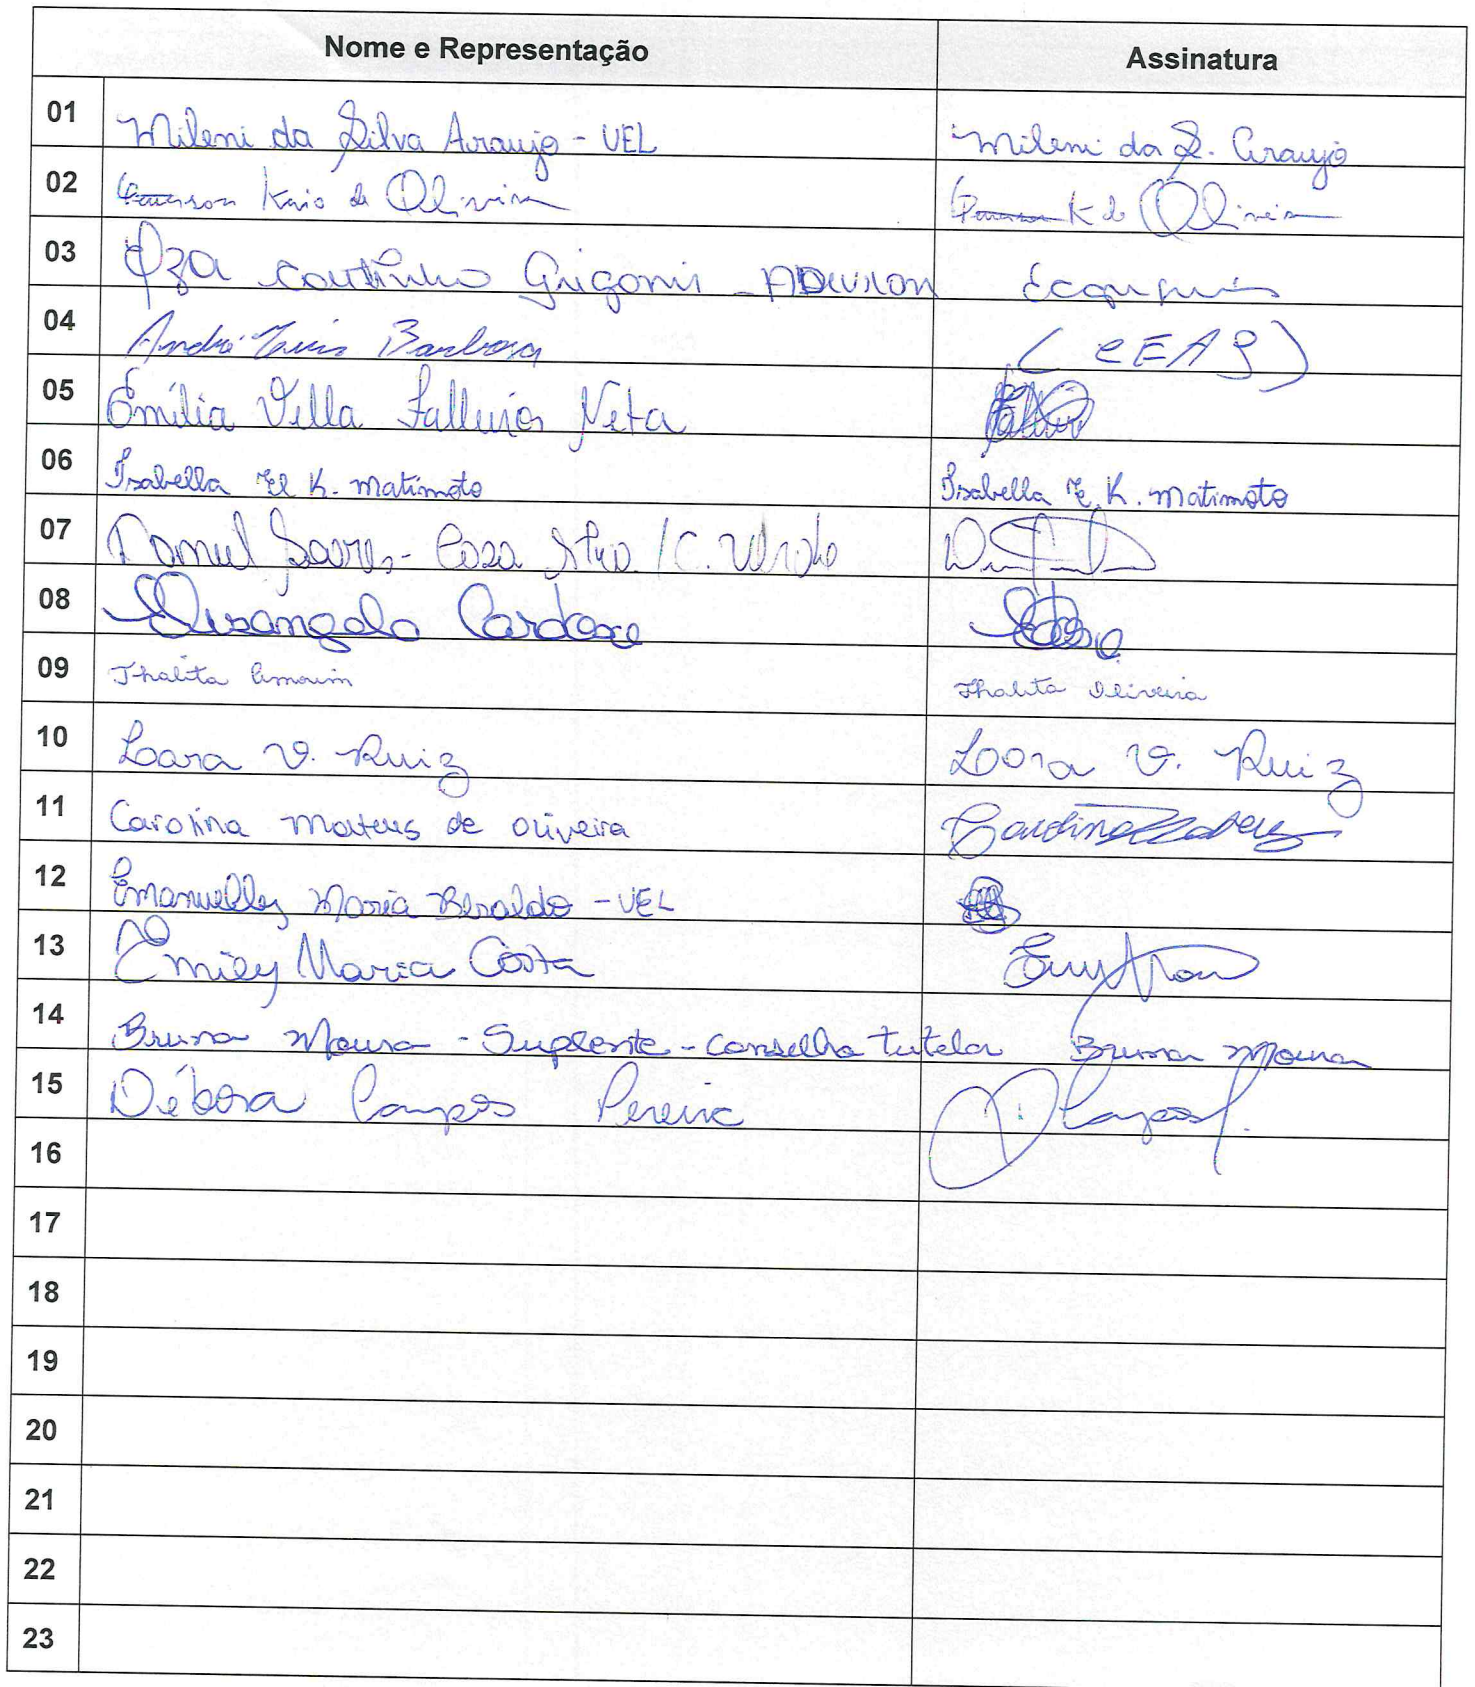 Nome e Representação Assinatura
01 Mileni da Silva Araujo - UEL Mileni da S. Araujo
02 Kaio de Oliveira K de Oliveira
03 Coutinho Grigoris - ADEVILON
04 André Luis Barbosa (CEAS)
05 Emília Villa Falleiros Neta
06 Isabella K. Matimoto Isabella K. Matimoto
07 Soares - Casa
08 Elisangela Cardoso
09 Thalita Amorim Thalita Oliveira
10 Loara V. Ruiz Loara V. Ruiz
11 Carolina Mateus de Oliveira
12 Emanuelly Maria Beraldo - UEL
13 Emily Maria Costa
14 Bruna Moura - Suplente - Conselho Tutelar Bruna Moura
15 Débora Campos Pereira
16
17
18
19
20
21
22
23